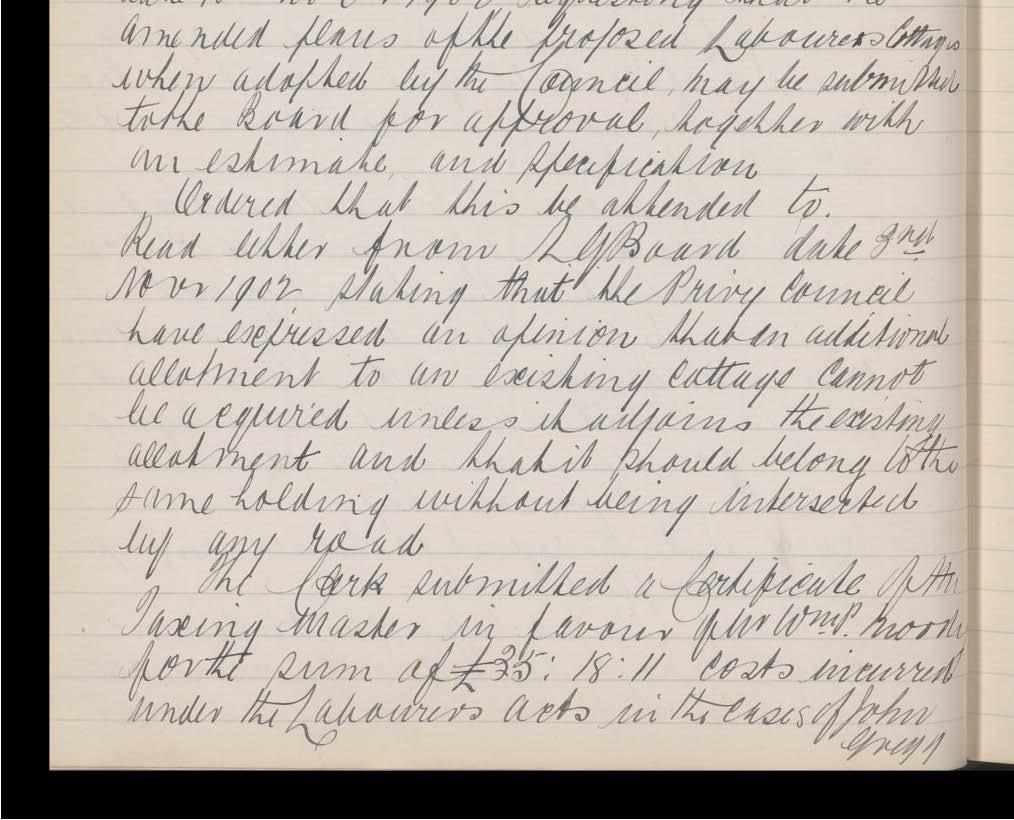 amended plans of the proposed Labourers Cottages
when adopted by the Council, may be submitted
to the Board for approval, together with
an estimate, and specification
Ordered that this be attended to.
Read letter from L G Board date 3rd
Novr 1902 stating that the Privy Council
have expressed an opinion that an additional
allotment to an existing Cottage cannot
be acquired unless it adjoins the existing
allotment and that it should belong to the
same holding without being intersected
by any road
The Clerk submitted a Certificate of the
Taxing Master in favour of Mr Wm P. Moody
for the sum of £35: 18: 11 costs incurred
under the Labourers Acts in the cases of John
Gregg